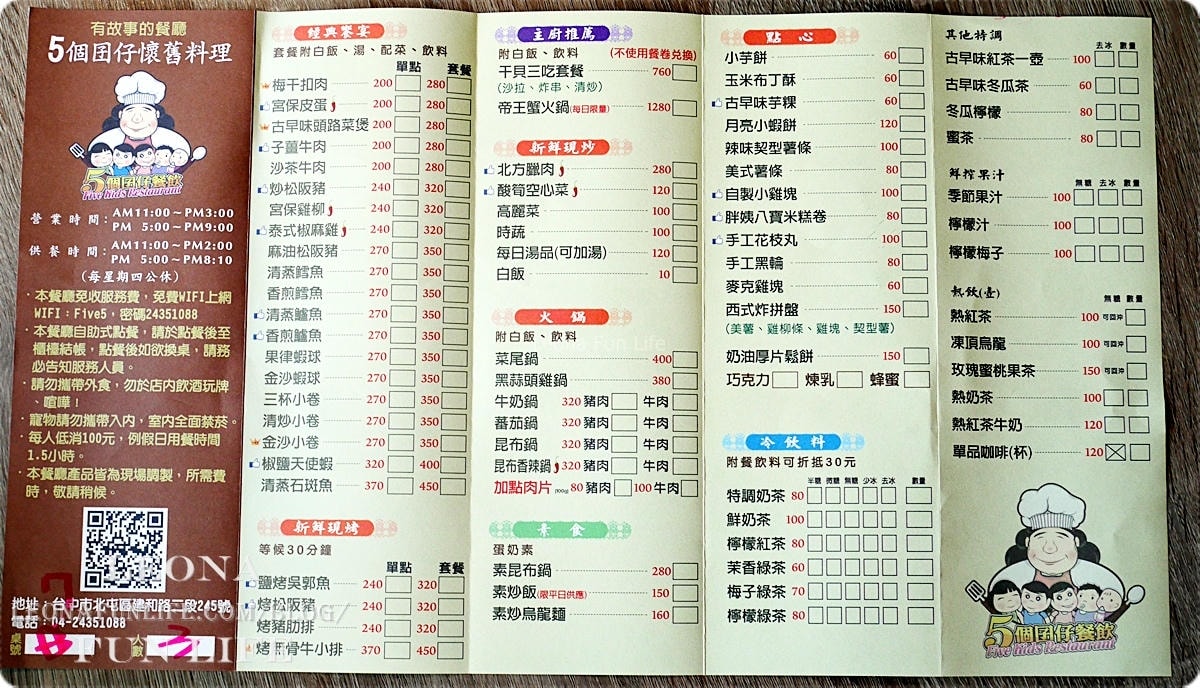 有故事的餐廳
5個囝仔懷舊料理
5個囝仔餐飲
Five Kids Restaurant
營業時間：AM11:00～PM3:00
PM 5:00～PM9:00
供餐時間：AM11:00～PM2:00
PM 5:00～PM8:10
(每星期四公休)
·本餐廳免收服務費，免費WIFI上網
WIFI：Five5，密碼24351088
·本餐廳自助式點餐，請於點餐後至
櫃檯結帳，點餐後如欲換桌，請務
必告知服務人員。
·請勿攜帶外食，勿於店內飲酒玩牌
、喧嘩！
·寵物請勿攜帶入內，室內全面禁菸。
·每人低消100元，例假日用餐時間
1.5小時。
·本餐廳產品皆為現場調製，所需費
時，敬請稍候。
地址：台中市北屯區建和路二段245號
電話：04-24351088
桌號
人數
LEONA
FUN LIFE
經典饗宴
套餐附白飯、湯、配菜、飲料
單點 套餐
梅干扣肉 200 280
宮保皮蛋 200 280
古早味頭路菜煲 200 280
子薑牛肉 200 280
沙茶牛肉 200 280
炒松阪豬 240 320
宮保雞柳 240 320
泰式椒麻雞 240 320
麻油松阪豬 270 350
清蒸鱈魚 270 350
香煎鱈魚 270 350
清蒸鱸魚 270 350
香煎鱸魚 270 350
果律蝦球 270 350
金沙蝦球 270 350
三杯小卷 270 350
清炒小卷 270 350
金沙小卷 270 350
椒鹽天使蝦 320 400
清蒸石斑魚 370 450
新鮮現烤
等候30分鐘
單點 套餐
鹽烤吳郭魚 240 320
烤松阪豬 240 320
烤豬肋排 240 320
烤帶骨牛小排 370 450
主廚推薦
附白飯、飲料 (不使用餐卷兌換)
干貝三吃套餐 760
(沙拉、炸串、清炒)
帝王蟹火鍋(每日限量) 1280
新鮮現炒
北方臘肉 280
酸筍空心菜 120
高麗菜 100
時蔬 100
每日湯品(可加湯) 120
白飯 10
火鍋
附白飯、飲料
菜尾鍋 400
黑蒜頭雞鍋 380
牛奶鍋 320 豬肉 牛肉
蕃茄鍋 320 豬肉 牛肉
昆布鍋 320 豬肉 牛肉
昆布香辣鍋 320 豬肉 牛肉
加點肉片(100g) 80 豬肉 100 牛肉
素食
蛋奶素
素昆布鍋 280
素炒飯(限平日供應) 150
素炒烏龍麵 160
點心
小芋餅 60
玉米布丁酥 60
古早味芋粿 60
月亮小蝦餅 120
辣味契型薯條 100
美式薯條 100
自製小雞塊 100
胖姨八寶米糕卷 80
手工花枝丸 100
手工黑輪 80
麥克雞塊 60
西式炸拼盤 150
(美薯、雞柳條、雞塊、契型薯)
奶油厚片鬆餅 150
巧克力 煉乳 蜂蜜
冷飲料
附餐飲料可折抵30元
半糖 微糖 無糖 少冰 去冰 數量
特調奶茶 80
鮮奶茶 100
檸檬紅茶 80
茉香綠茶 60
梅子綠茶 70
檸檬綠茶 80
其他特調
去冰 數量
古早味紅茶一壺 100
古早味冬瓜茶 60
冬瓜檸檬 80
蜜茶 80
鮮搾果汁
無糖 去冰 數量
季節果汁 100
檸檬汁 100
檸檬梅子 100
熱飲(壺)
無糖 數量
熱紅茶 100 可回沖
凍頂烏龍 100 可回沖
玫瑰蜜桃果茶 150 可回沖
熱奶茶 100
熱紅茶牛奶 120
單品咖啡(杯) 120
5個囝仔餐飲
Five Kids Restaurant